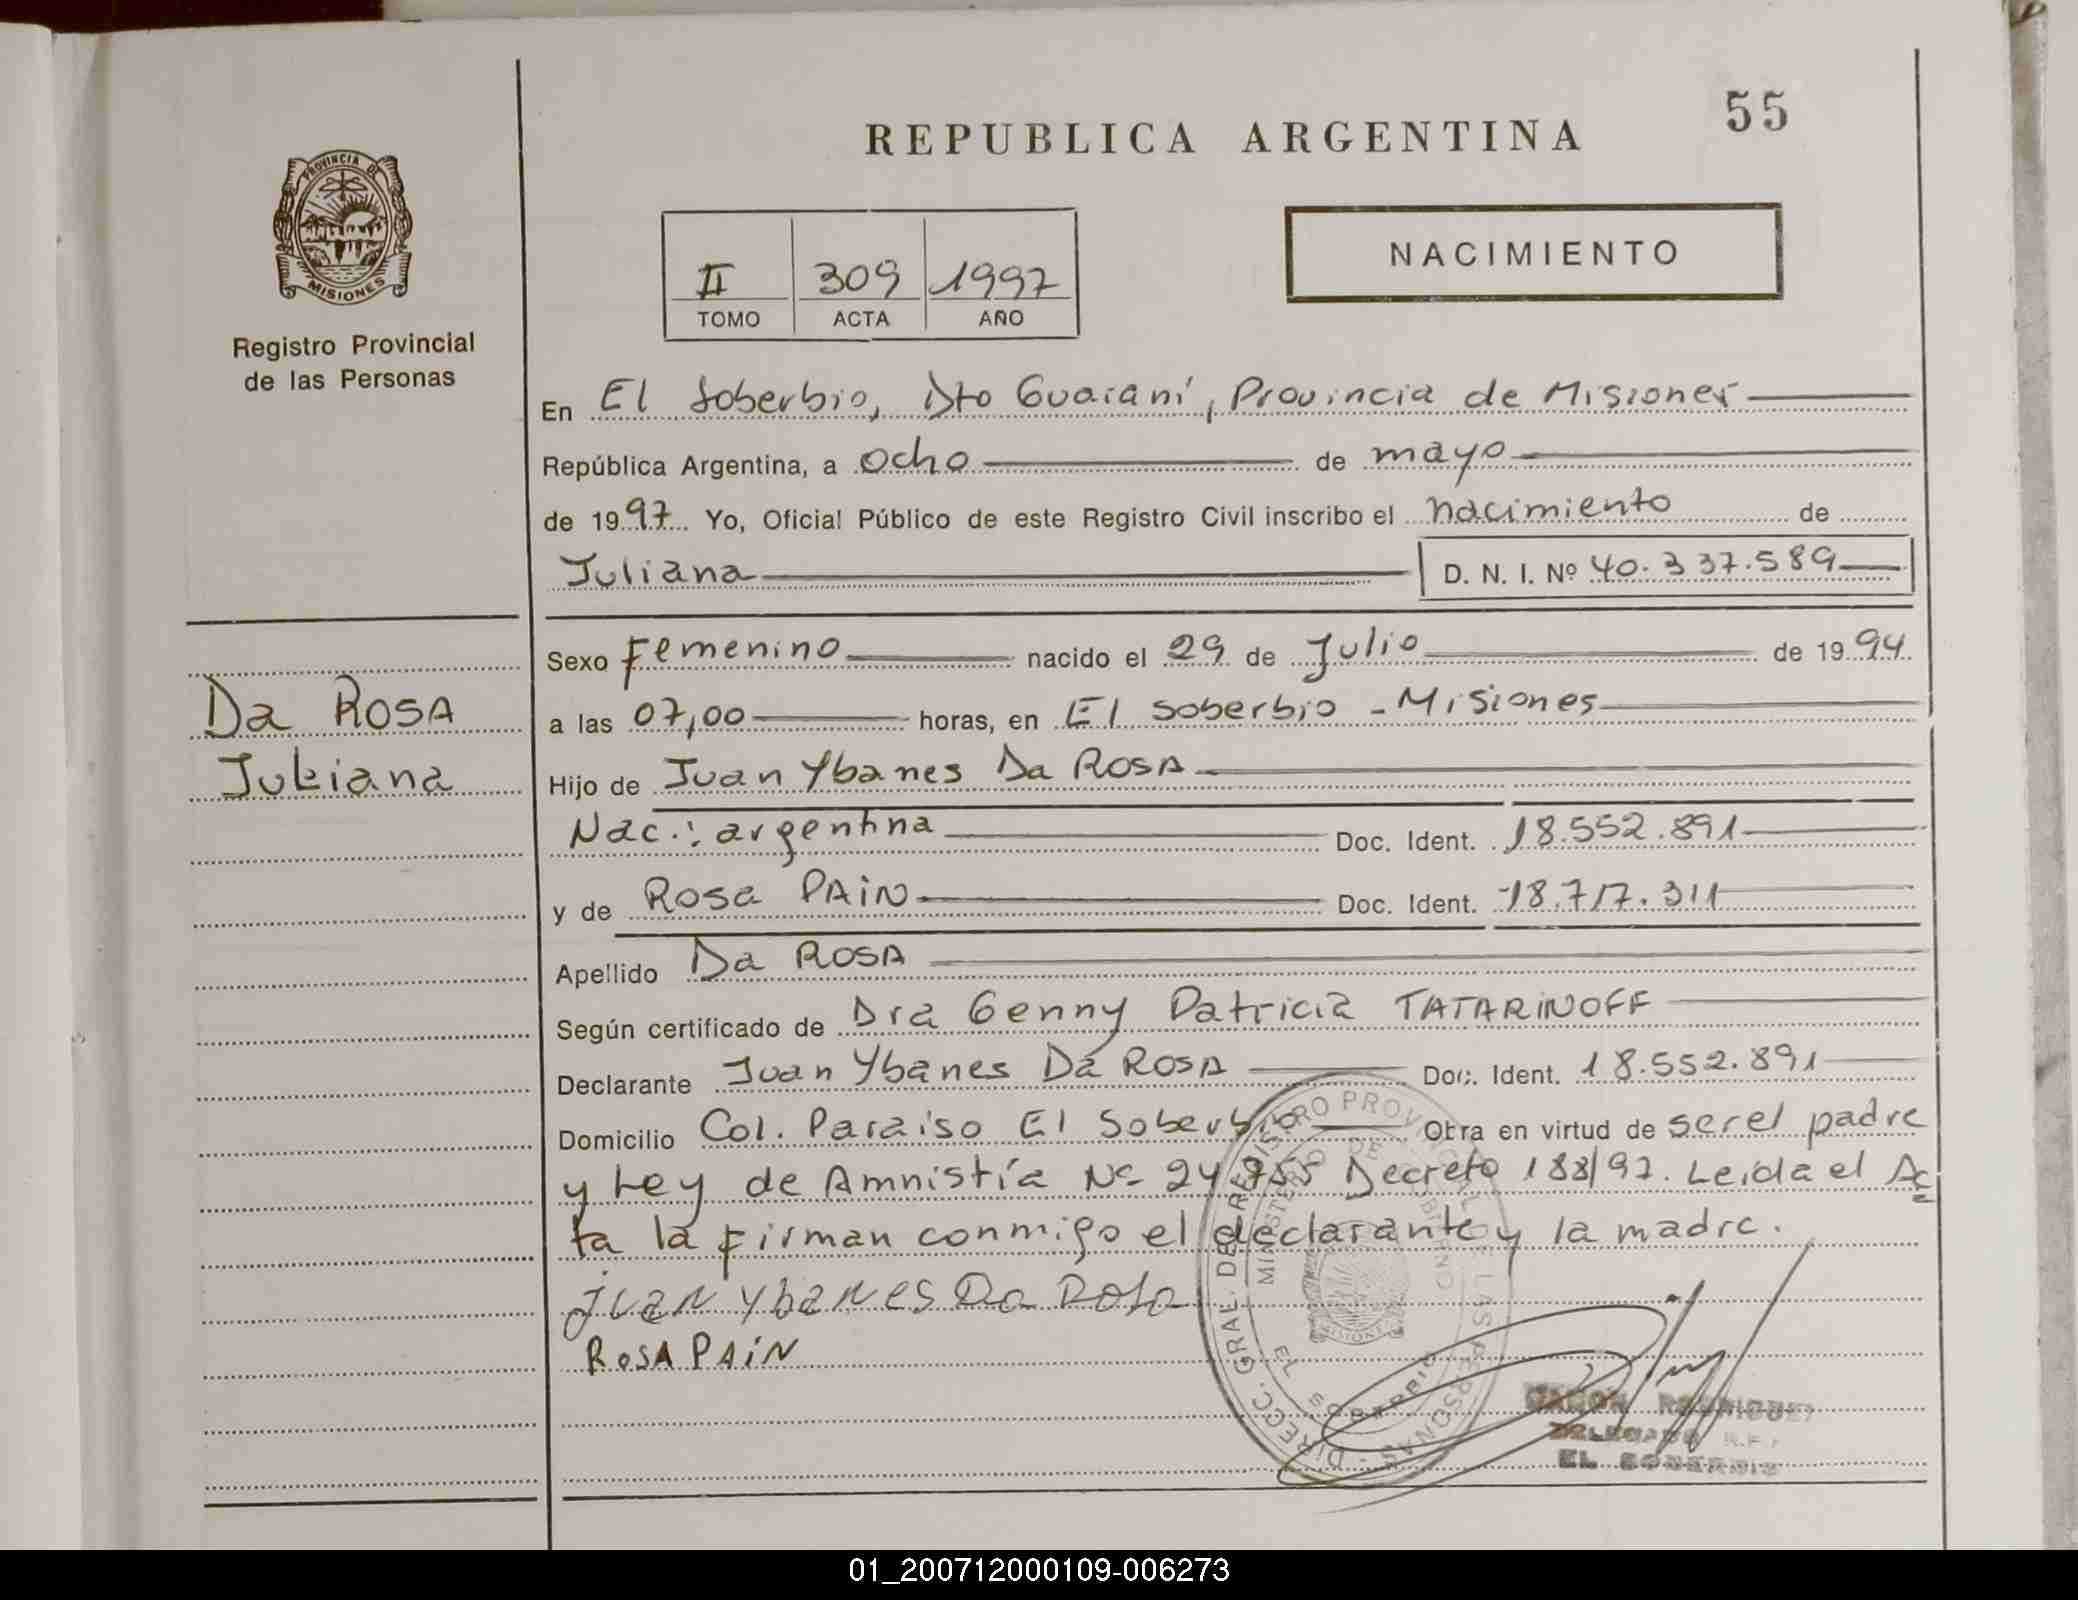 55
REPUBLICA ARGENTINA
PROVINCIA DE
MISIONES
Registro Provincial
de las Personas
NACIMIENTO
II 309 1997
TOMO ACTA AÑO
En El Soberbio, Dto Guaraní, Provincia de Misiones
República Argentina, a ocho de mayo
de 1997 Yo, Oficial Público de este Registro Civil inscribo el nacimiento de
Juliana D. N. I. Nº 40.337.589
Sexo Femenino nacido el 29 de Julio de 1994
Da ROSA
Juliana
a las 07,00 horas, en El Soberbio - Misiones
Hijo de Juan Ybanes Da ROSA
Nac.: argentina Doc. Ident. 18.552.891
y de Rosa PAiN Doc. Ident. 18.717.311
Apellido Da ROSA
Según certificado de Dra Genny Patricia TATARINOFF
Declarante Juan Ybanes Da ROSA Doc. Ident. 18.552.891
Domicilio Col. Paraiso El Soberbio Obra en virtud de ser el padre
y Ley de Amnistía Nº 24.755 Decreto 188/97. Leida el Ac
ta la firman conmigo el declarante y la madre.
Juan Ybanes Da Rosa
ROSA PAiN
DIRECC. GRAL. DE REGISTRO PROVINCIAL DE LAS PERSONAS
MINISTERIO DE GOBIERNO
EL SOBERBIO
MISIONES
RODRIGUEZ
DELEGADO R.P.
EL SOBERBIO
01_200712000109-006273